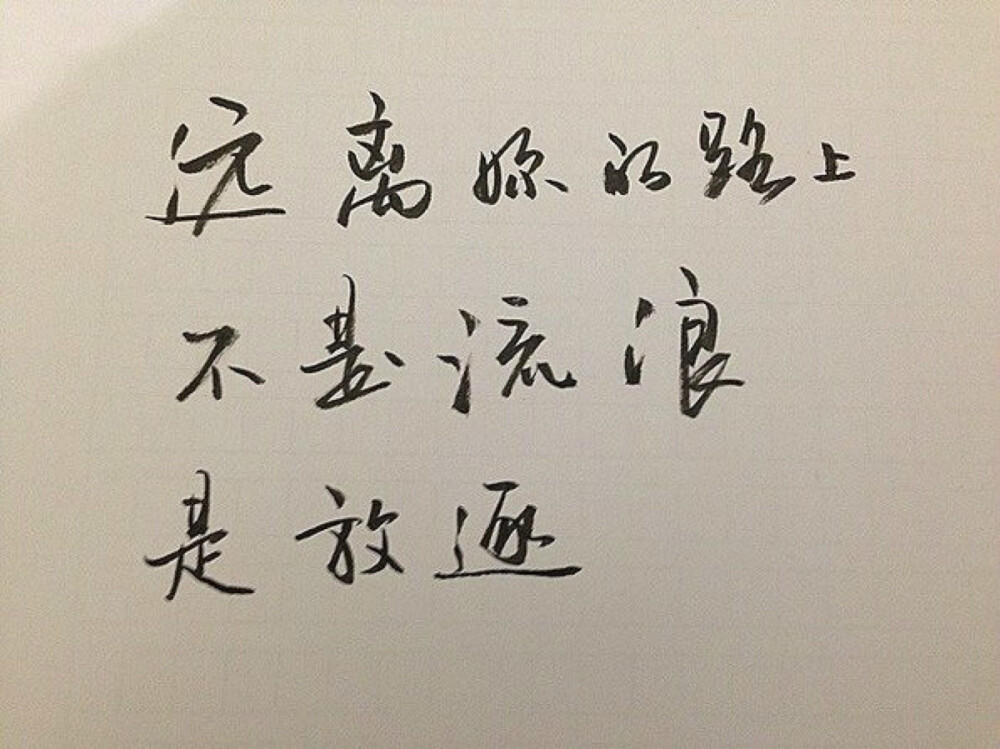 远离妳的路上
不甚流浪
是放逐